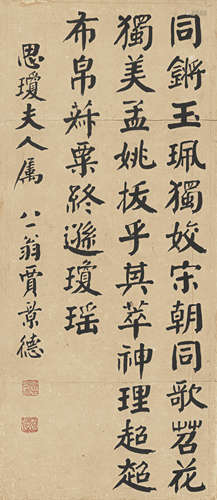 同鏘玉珮獨姣宋朝同歌苕花
獨美孟姚拔乎其萃神理超超
布帛菽粟終遜瓊瑤
思瓊夫人属 八一翁賈景德